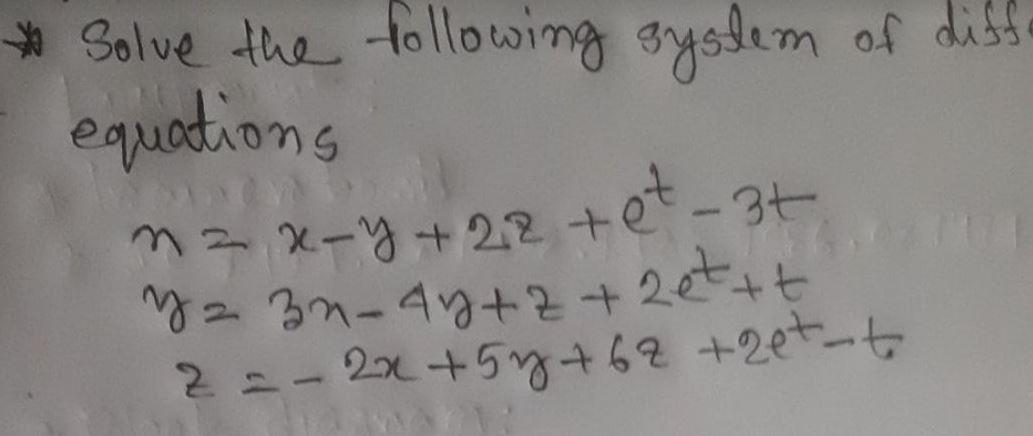 * Solve the following system of diff.
equations
x = x - y + 2z + e^t - 3t
y = 3x - 4y + z + 2e^t + t
z = - 2x + 5y + 6z + 2e^t - t